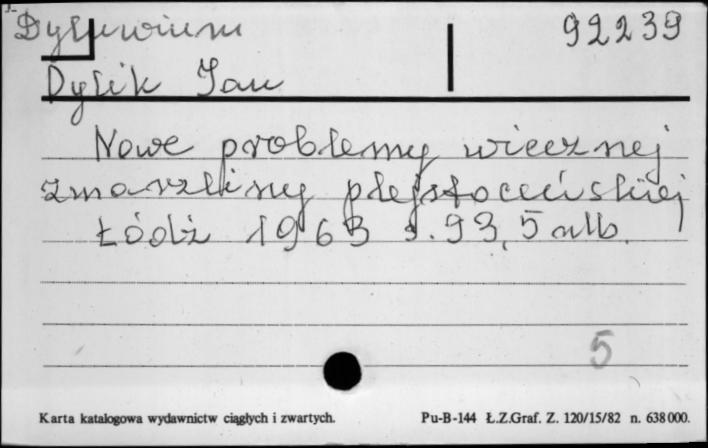 Dyluwium 92239
Dylik Jan
Nowe problemy wiecznej
zmarzliny plejstoceńskiej
Łódź 1963 s. 93, 5 nlb.
5
Karta katalogowa wydawnictw ciągłych i zwartych. Pu-B-144 Ł.Z.Graf. Z. 120/15/82 n. 638000.